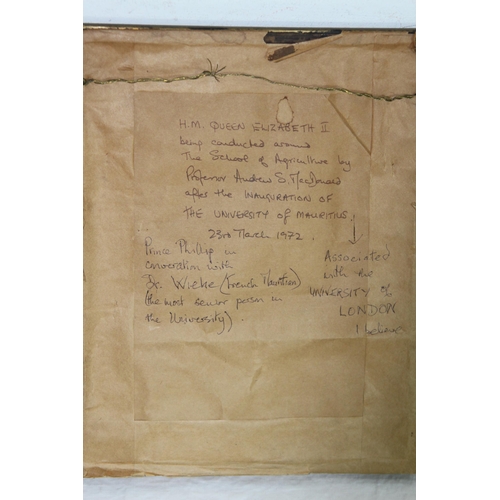 H.M. QUEEN ELIZABETH II
being conducted around
The School of Agriculture by
Professor Andrew S. MacDonald
after the INAUGURATION OF
THE UNIVERSITY OF MAURITIUS.
23rd March 1972.
Prince Phillip in
conversation with
Dr. Wiehe (French Mauritian)
(the most senior person in
the University).
Associated
with the
UNIVERSITY of
LONDON
I believe